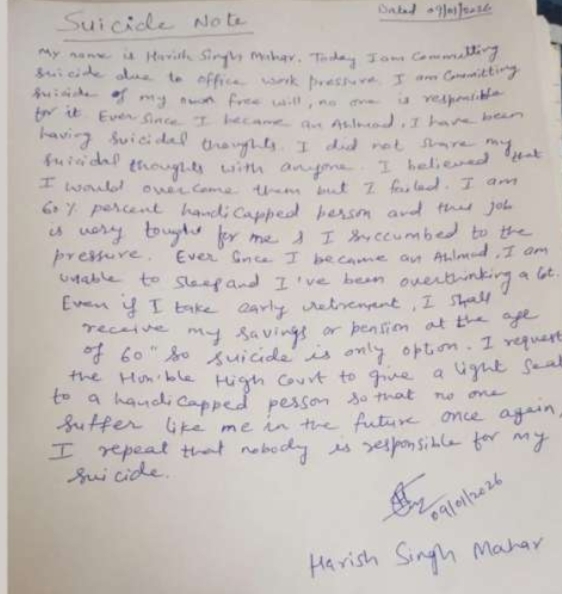 Suicide Note
Dated 09/01/2026
My name is Harish Singh Mahar. Today I am Committing
suicide due to office work pressure. I am Committing
suicide of my own free will, no one is responsible
for it Ever Since I became an Ahlmad, I have been
having suicidal thoughts. I did not share my
suicidal thoughts with anyone. I believed that
I would overcome them but I failed. I am
60% percent handicapped person and this job
is very tough for me & I succumbed to the
pressure. Ever Since I became an Ahlmad, I am
unable to sleep and I've been overthinking a lot.
Even if I take early retirement, I shall
receive my savings or pension at the age
of 60" So suicide is only option. I request
the Hon'ble High Court to give a light Seat
to a handicapped person So that no one
suffer like me in the future once again,
I repeat that nobody is responsible for my
suicide.
09/01/2026
Harish Singh Mahar